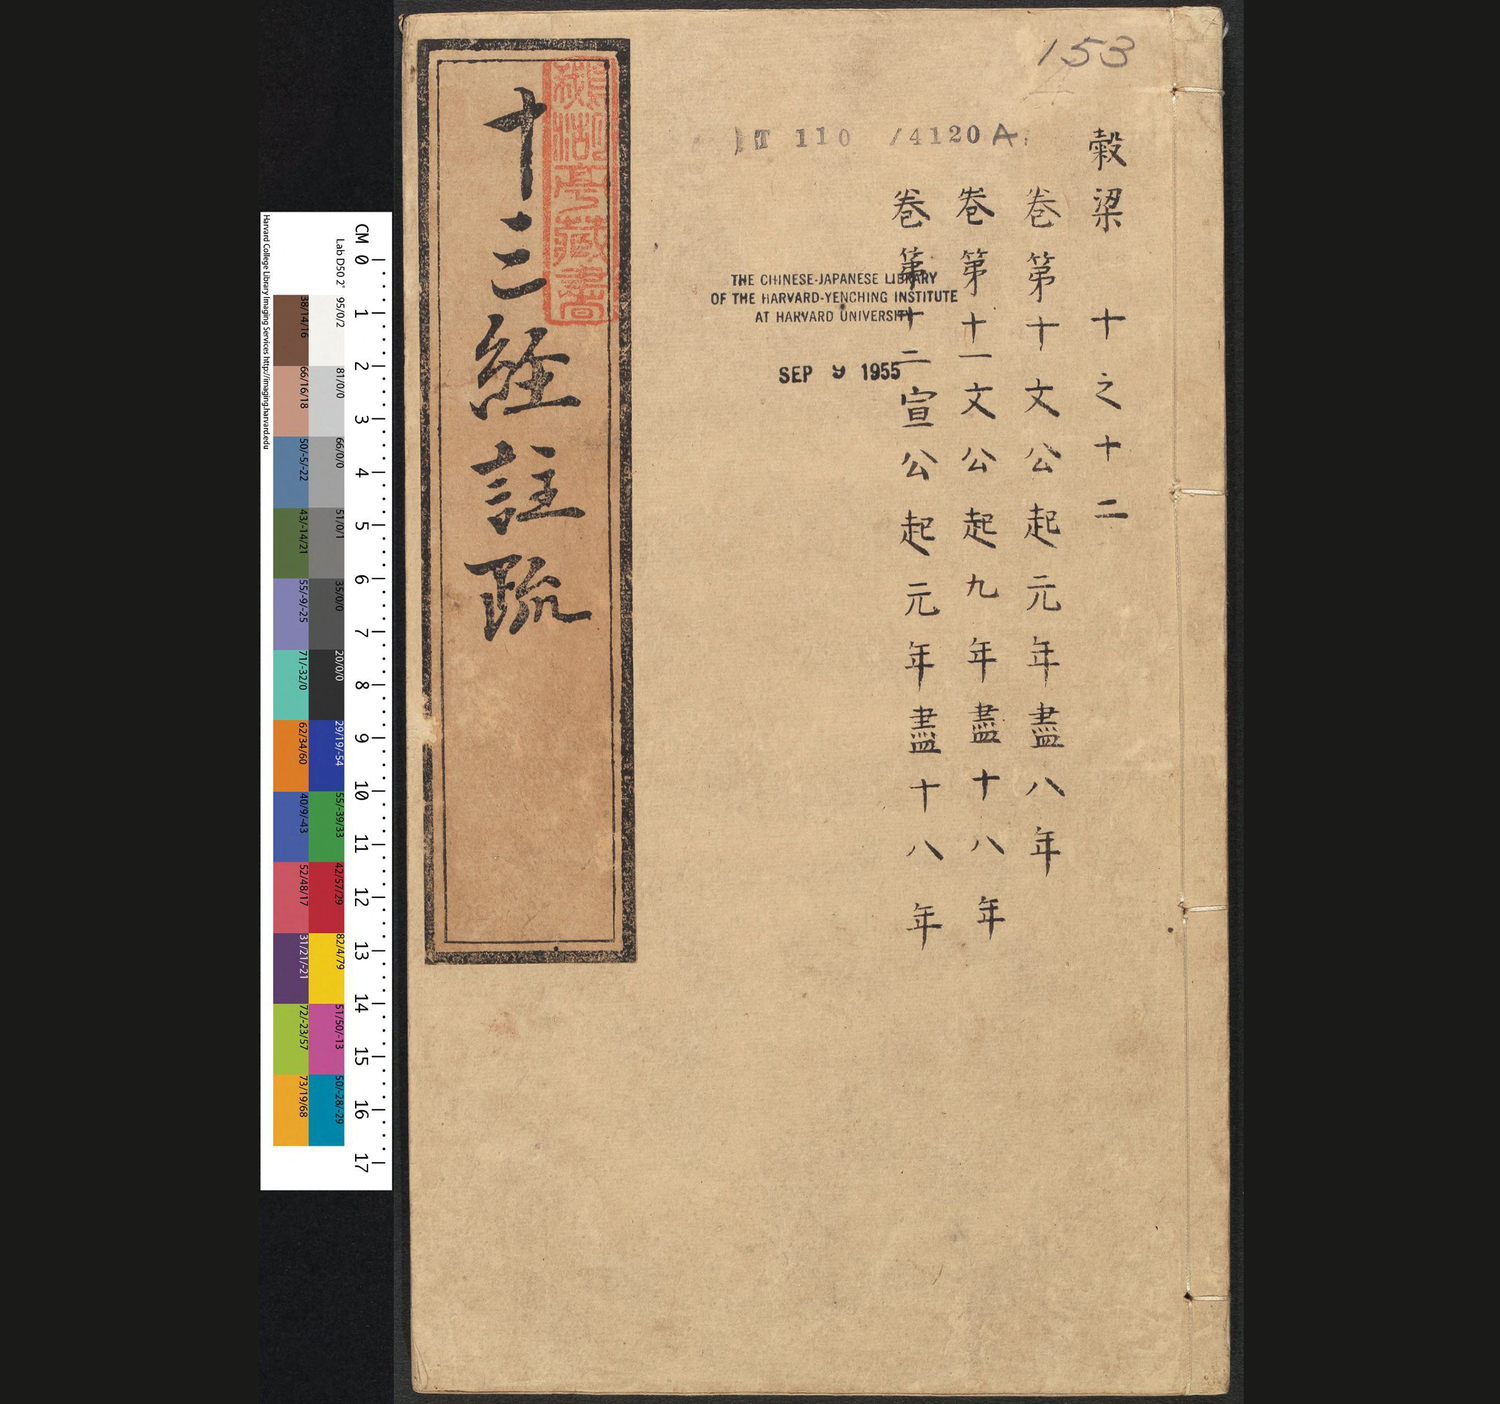 153
T 110 /4120 A
穀梁 十之十二
卷第十文公起元年盡八年
卷第十一文公起九年盡十八年
卷第十二宣公起元年盡十八年
THE CHINESE-JAPANESE LIBRARY
OF THE HARVARD-YENCHING INSTITUTE
AT HARVARD UNIVERSITY
SEP 9 1955
十三經註疏
CM 0 1 2 3 4 5 6 7 8 9 10 11 12 13 14 15 16 17
Lab D50 2°
95/0/2
81/0/0
66/0/0
51/0/1
35/0/0
20/0/0
29/19/-54
55/-39/33
42/57/29
82/4/79
51/50/-13
50/-28/-29
38/14/16
66/16/18
50/-5/-22
43/-14/21
55/-9/-25
71/-32/0
62/34/60
40/9/-43
52/48/17
31/21/-21
72/-23/57
73/19/68
Harvard College Library Imaging Services http://imaging.harvard.edu